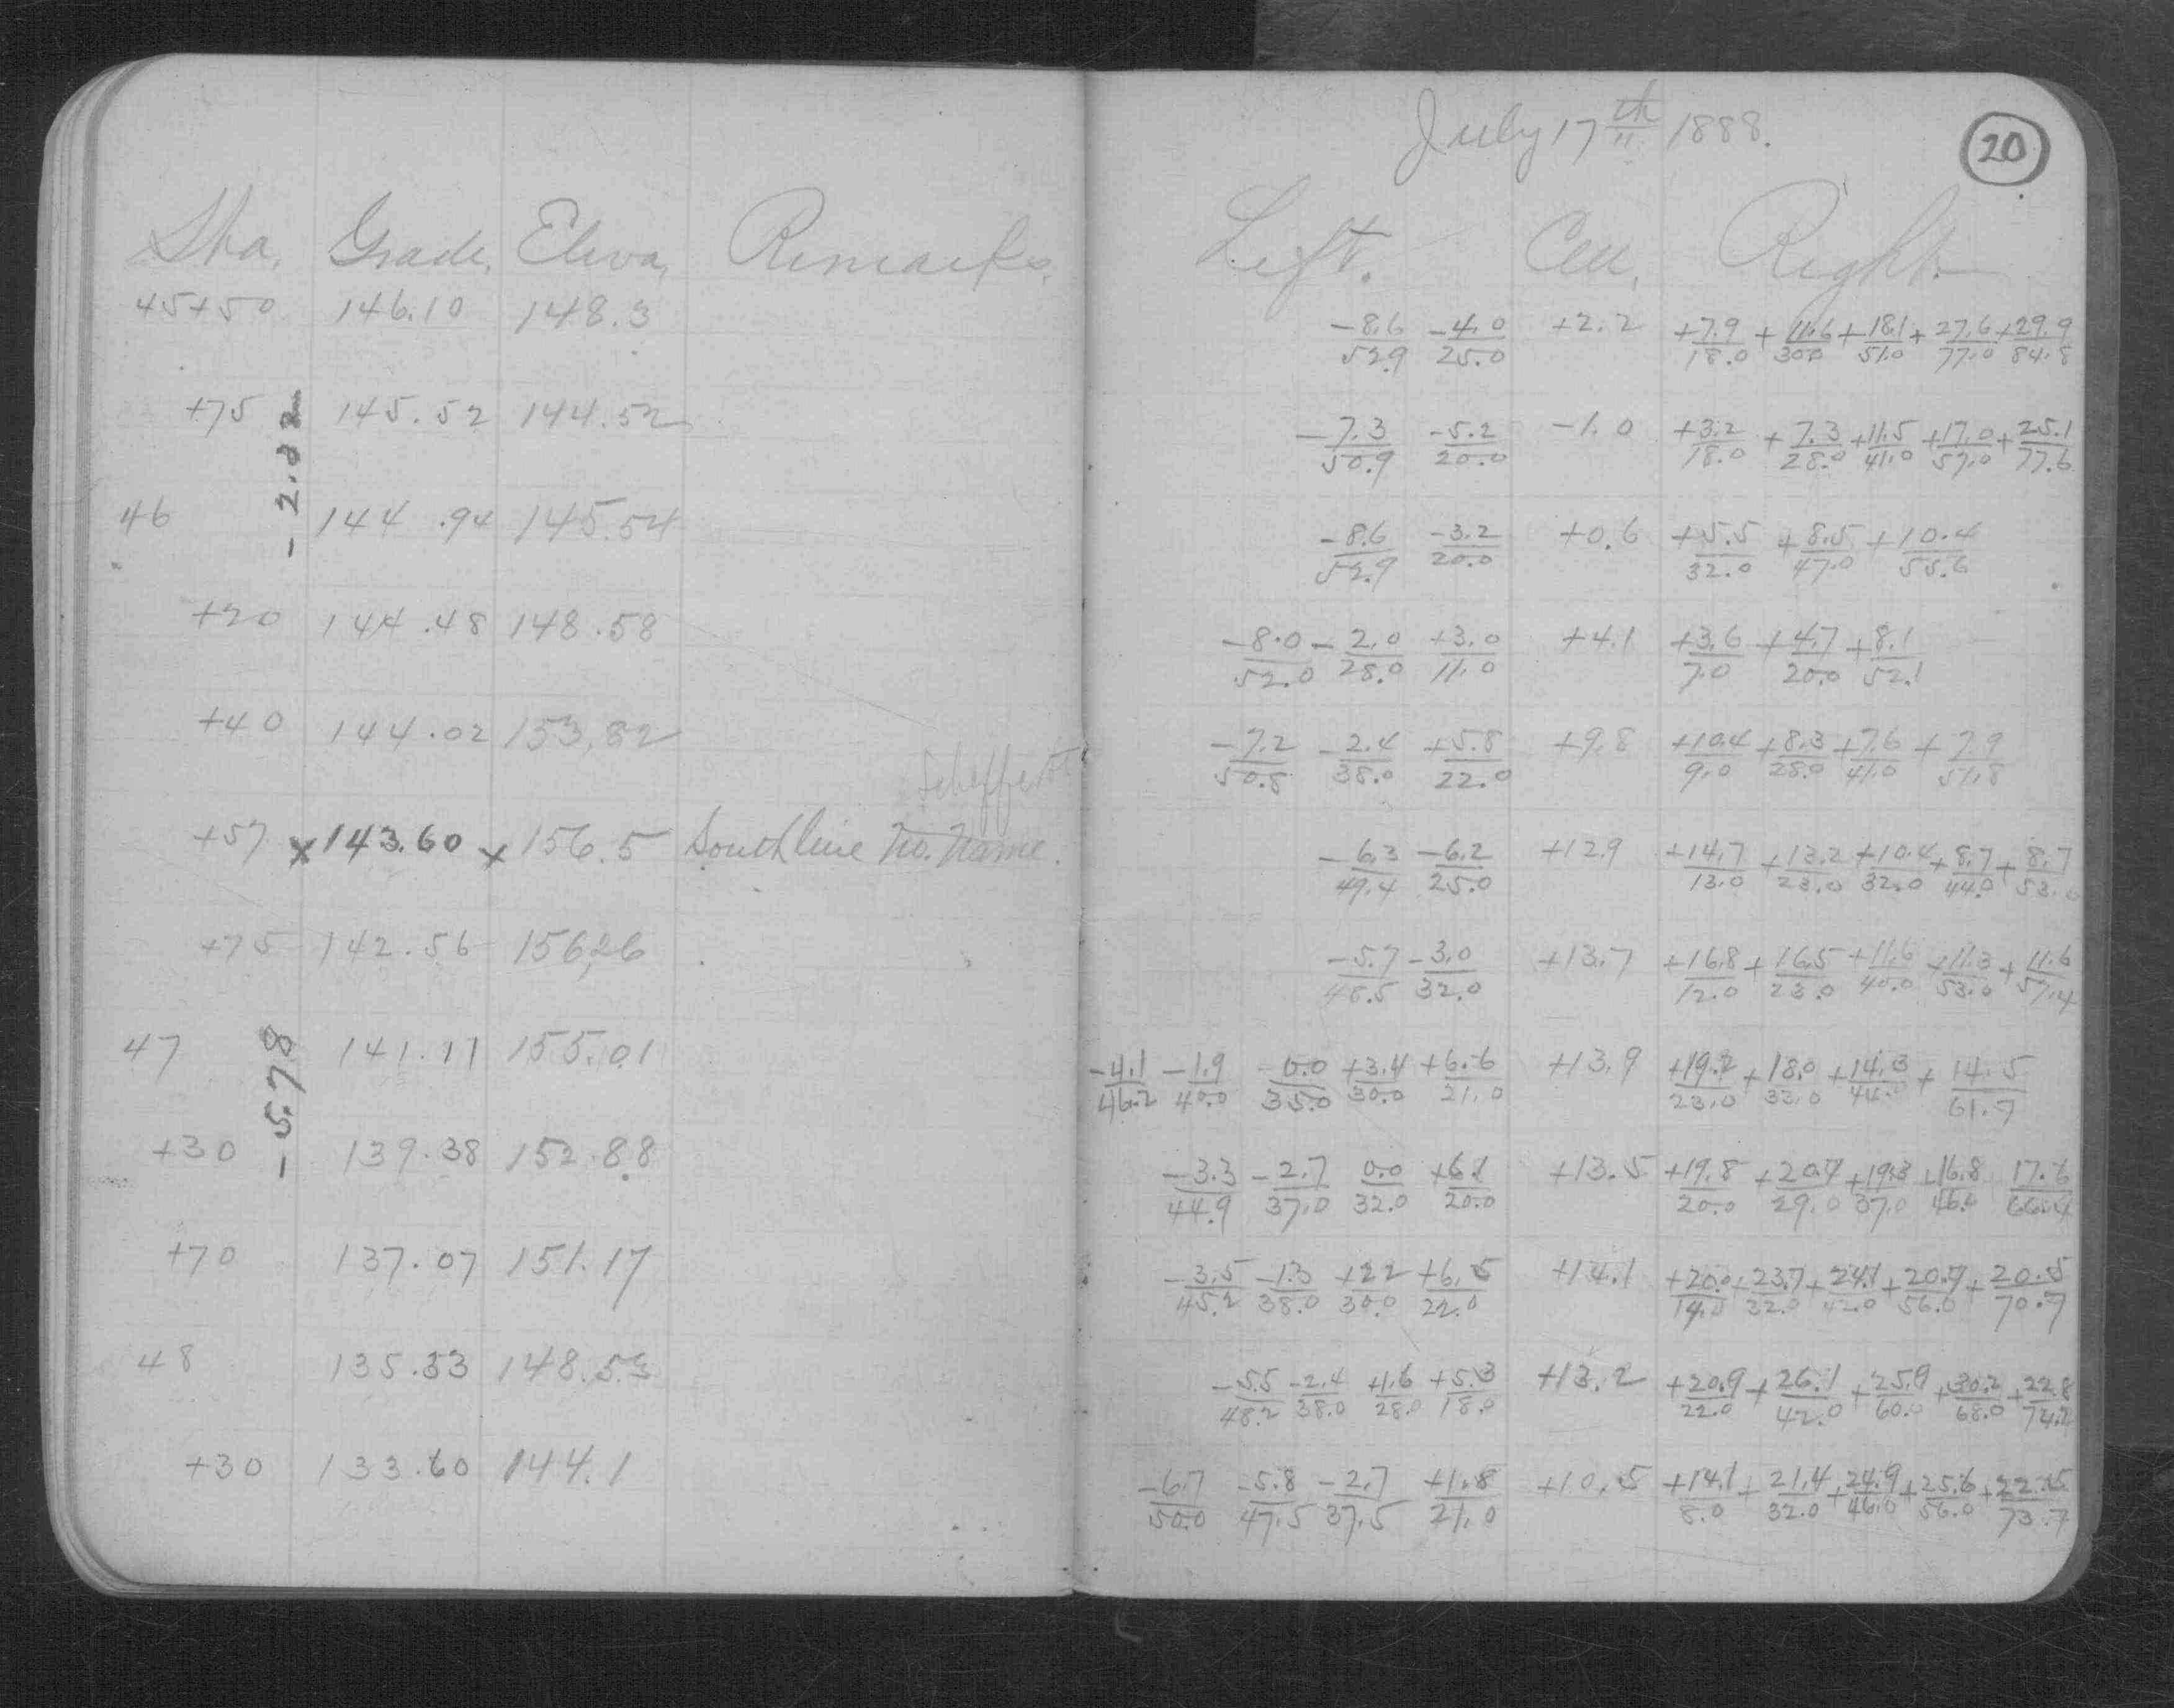 July 17th 1888.
20
Sta. Grade. Eleva. Remarks. Left. Cen. Right.
45+50 146.10 148.3 -8.6/52.9 -4.0/25.0 +2.2 +7.9/18.0 +11.6/30.0 +18.1/51.0 +27.6/77.0 +29.9/84.8
+75 145.52 144.52 -7.3/50.9 -5.2/20.0 -1.0 +3.2/18.0 +7.3/28.0 +11.5/41.0 +17.0/57.0 +25.1/77.6
46 144.94 145.54 -8.6/52.9 -3.2/20.0 +0.6 +5.5/32.0 +8.5/47.0 +10.4/55.6
+20 144.48 148.58 -8.0/52.0 -2.0/28.0 +3.0/11.0 +4.1 +3.6/7.0 +4.7/20.0 +8.1/52.1
+40 144.02 153.82 -7.2/50.8 -2.4/38.0 +5.8/22.0 +9.8 +10.4/9.0 +8.3/28.0 +7.6/41.0 +7.9/51.8
+57 x 143.60 x 156.5 South line No. Name. -6.3/49.4 -6.2/25.0 +12.9 +14.7/13.0 +13.2/23.0 +10.4/32.0 +8.7/44.0 +8.7/53.0
+75 142.56 156.26 -5.7/48.5 -3.0/32.0 +13.7 +16.8/12.0 +16.5/23.0 +11.6/40.0 +11.3/53.0 +11.6/57.4
47 141.11 155.01 -4.1/46.2 -1.9/40.0 -0.0/35.0 +3.4/30.0 +6.6/21.0 +13.9 +19.2/23.0 +18.0/33.0 +14.3/44.0 +14.5/61.7
-5.78
+30 139.38 152.88 -3.3/44.9 -2.7/37.0 0.0/32.0 +6.1/20.0 +13.5 +19.8/20.0 +20.7/29.0 +19.3/37.0 +16.8/46.0 17.6/66.4
+70 137.07 151.17 -3.5/45.2 -1.3/38.0 +2.2/30.0 +6.5/22.0 +14.1 +20.0/14.0 +23.7/32.0 +24.1/42.0 +20.7/56.0 +20.5/70.7
48 135.33 148.53 -5.5/48.2 -2.4/38.0 +1.6/28.0 +5.3/18.0 +13.2 +20.9/22.0 +26.1/42.0 +25.9/60.0 +30.2/68.0 +22.8/74.2
+30 133.60 144.1 -6.7/50.0 -5.8/47.5 -2.7/37.5 +1.8/21.0 +10.5 +14.1/8.0 +21.4/32.0 +24.9/46.0 +25.6/56.0 +22.5/73.7